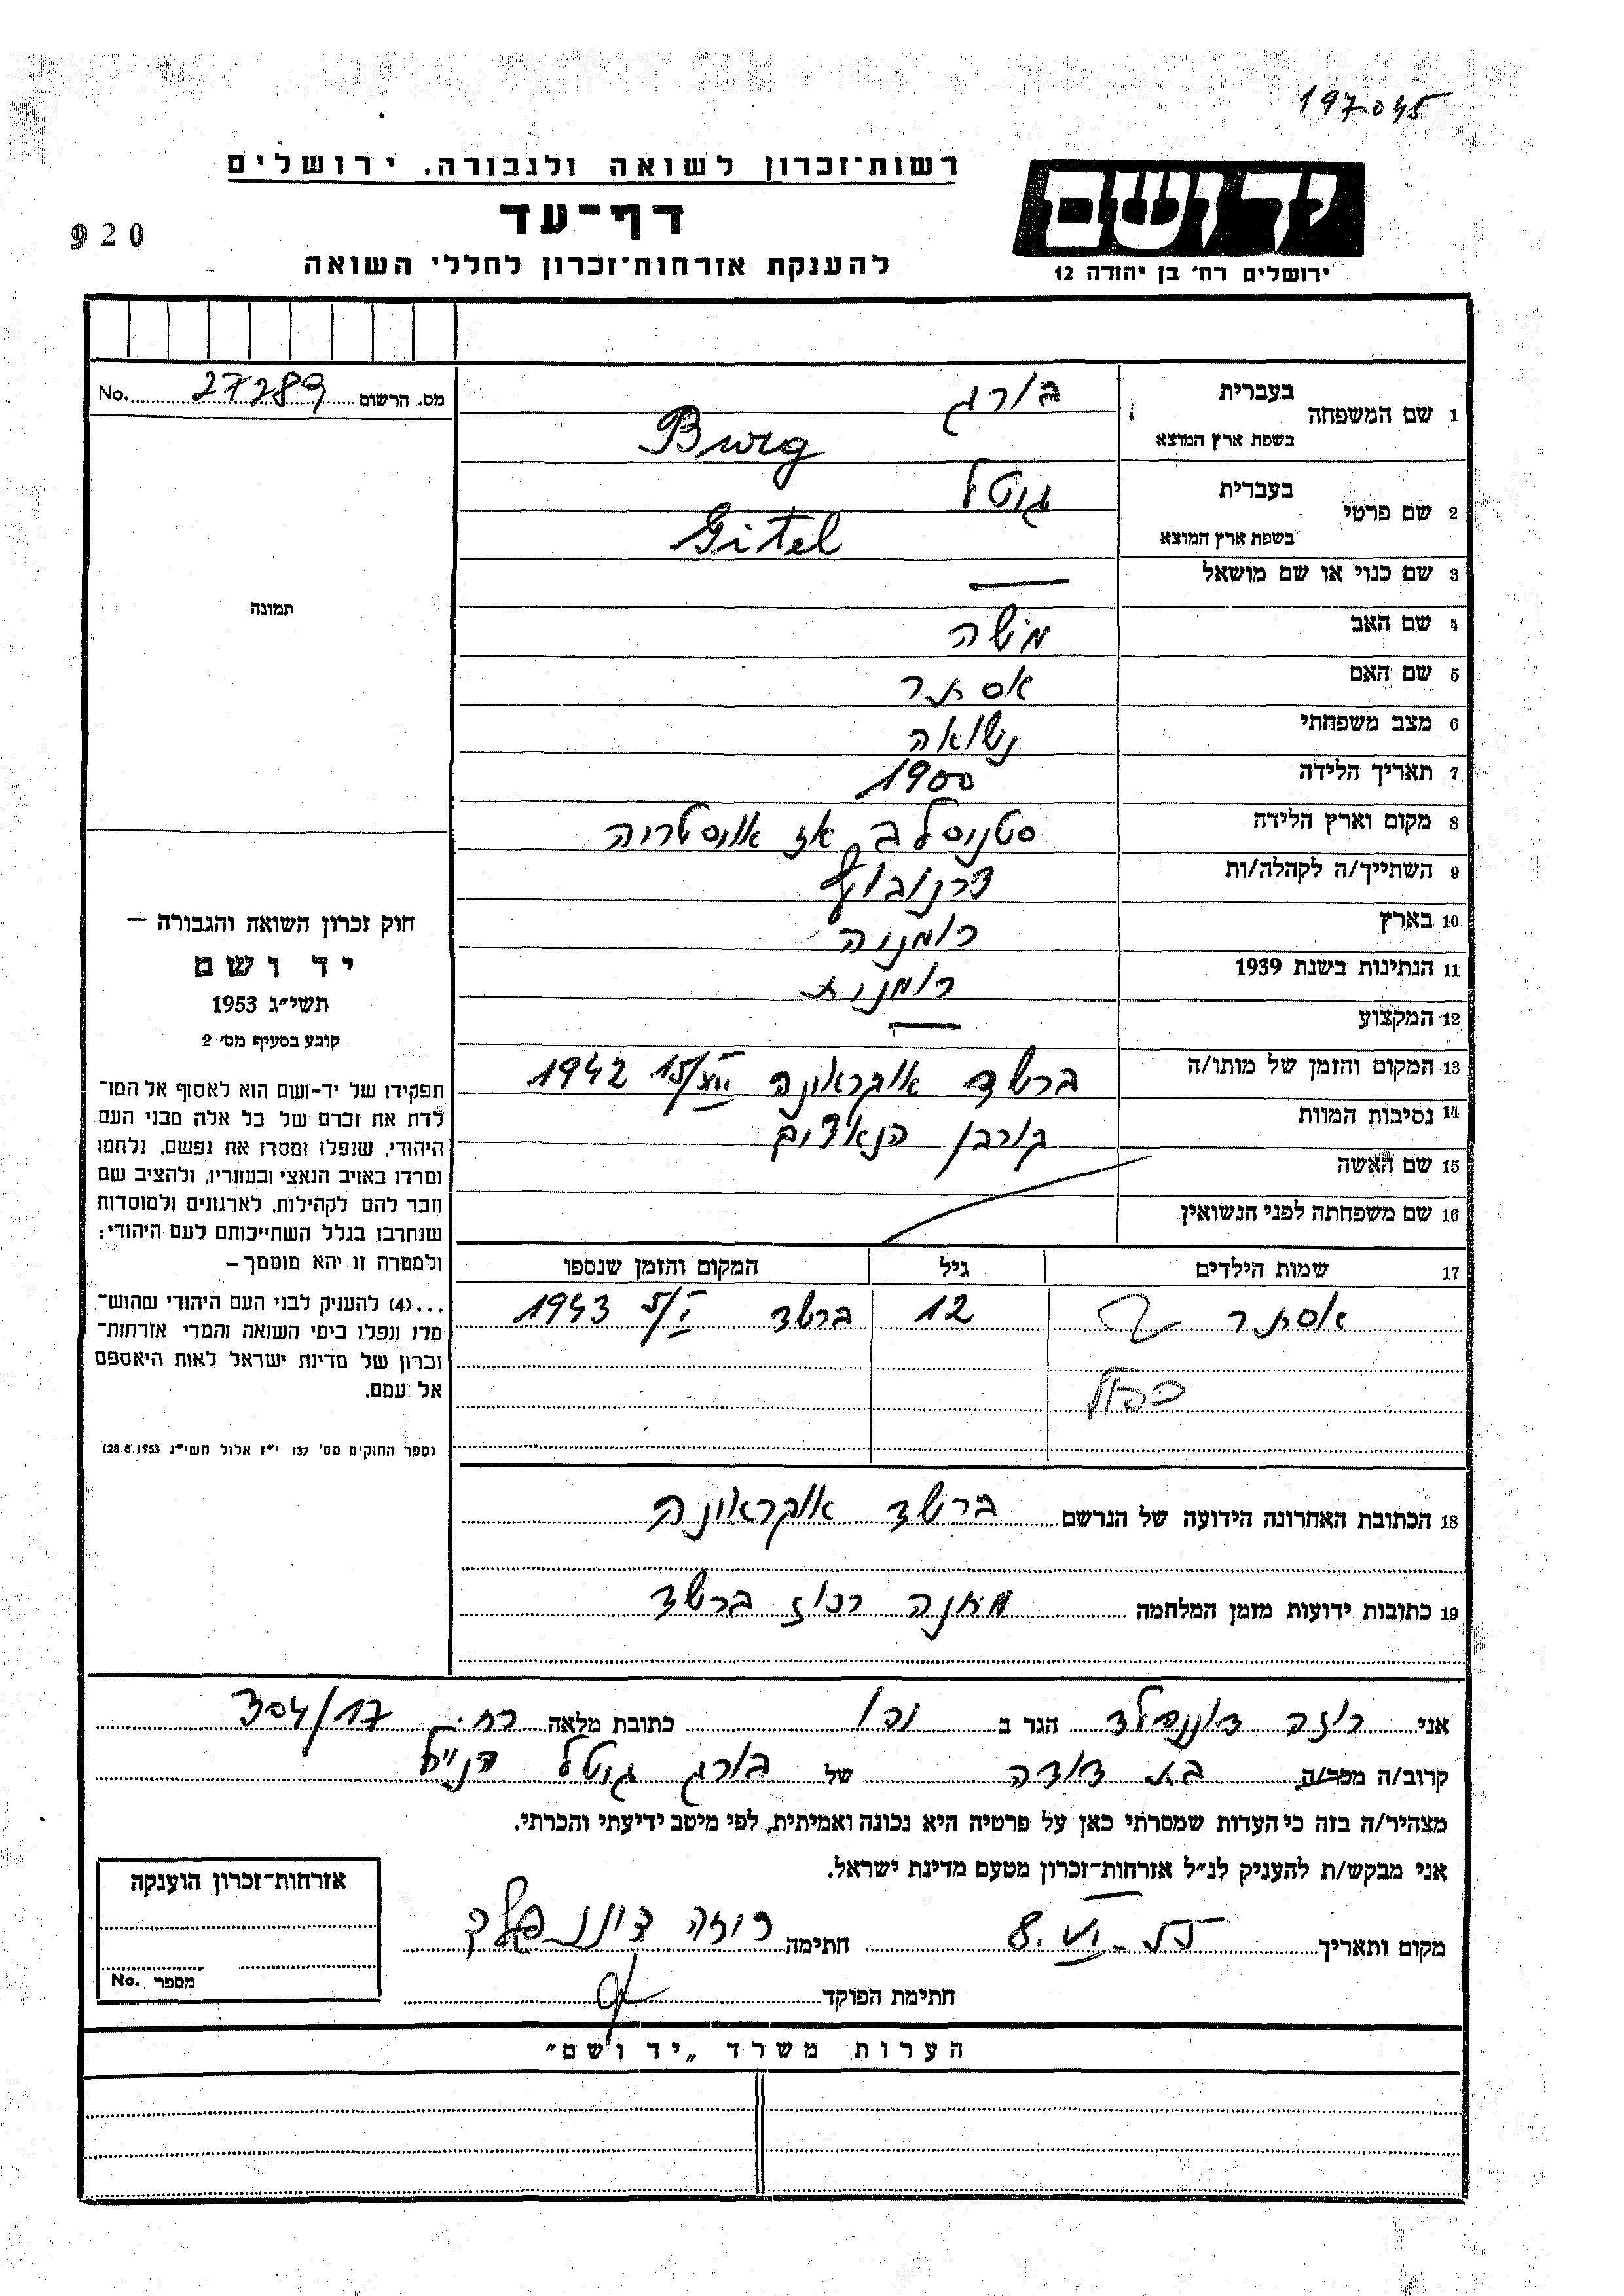 197045
רשות־זכרון לשואה ולגבורה. ירושלים
דף־עד
920
להענקת אזרחות־זכרון לחללי השואה
יד ושם
ירושלים רח' בן יהודה 12
מס. הרשום 27289 No.
1 שם המשפחה
בעברית בורג
בשפת ארץ המוצא Burg
2 שם פרטי
בעברית גיטל
בשפת ארץ המוצא Gitel
3 שם כנוי או שם מושאל —
4 שם האב משה
5 שם האם אסתר
6 מצב משפחתי נשואה
7 תאריך הלידה 1900
8 מקום וארץ הלידה סטניסלב אז אוסטריה
9 השתייך/ה לקהלה/ות
10 בארץ רומניה
11 הנתינות בשנת 1939 רומנית
12 המקצוע —
13 המקום והזמן של מותו/ה ברשד אוקראינה 1942
14 נסיבות המוות קורבן הנאצים
15 שם האשה
16 שם משפחתה לפני הנשואין
17 שמות הילדים גיל המקום והזמן שנספו
אסתר 12 ברשד 5/I 1943
כפול
18 הכתובת האחרונה הידועה של הנרשם ברשד אוקראינה
19 כתובות ידועות מזמן המלחמה מחנה רכוז ברשד
תמונה
חוק זכרון השואה והגבורה —
יד ושם
תשי״ג 1953
קובע בסעיף מס' 2
תפקידו של יד-ושם הוא לאסוף אל המו־
לדת את זכרם של כל אלה מבני העם
היהודי, שנפלו ומסרו את נפשם, נלחמו
ומרדו באויב הנאצי ובעוזריו, ולהציב שם
וזכר להם לקהילות, לארגונים ולמוסדות
שנחרבו בגלל השתייכותם לעם היהודי;
ולמטרה זו יהא מוסמך —
...(4) להעניק לבני העם היהודי שהוש־
מדו ונפלו בימי השואה והמרי אזרחות־
זכרון של מדינת ישראל לאות היאספם
אל עמם.
(ספר החוקים מס' 132 י״ז אלול תשי״ג 28.8.1953)
אני רוזה הגר ב יפו כתובת מלאה רח. 304/17
קרוב/ה מכר/ה בת דודה של בורג גיטל הנ״ל
מצהיר/ה בזה כי העדות שמסרתי כאן על פרטיה היא נכונה ואמיתית, לפי מיטב ידיעתי והכרתי.
אני מבקש/ת להעניק לנ״ל אזרחות־זכרון מטעם מדינת ישראל.
מקום ותאריך 8. VI. 55 חתימה רוזה
חתימת הפוקד
אזרחות־זכרון הוענקה
מספר No.
הערות משרד „יד ושם״